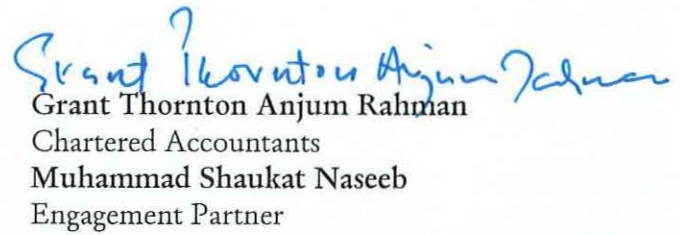 Grant Thornton Anjum Rahman
Grant Thornton Anjum Rahman
Chartered Accountants
Muhammad Shaukat Naseeb
Engagement Partner